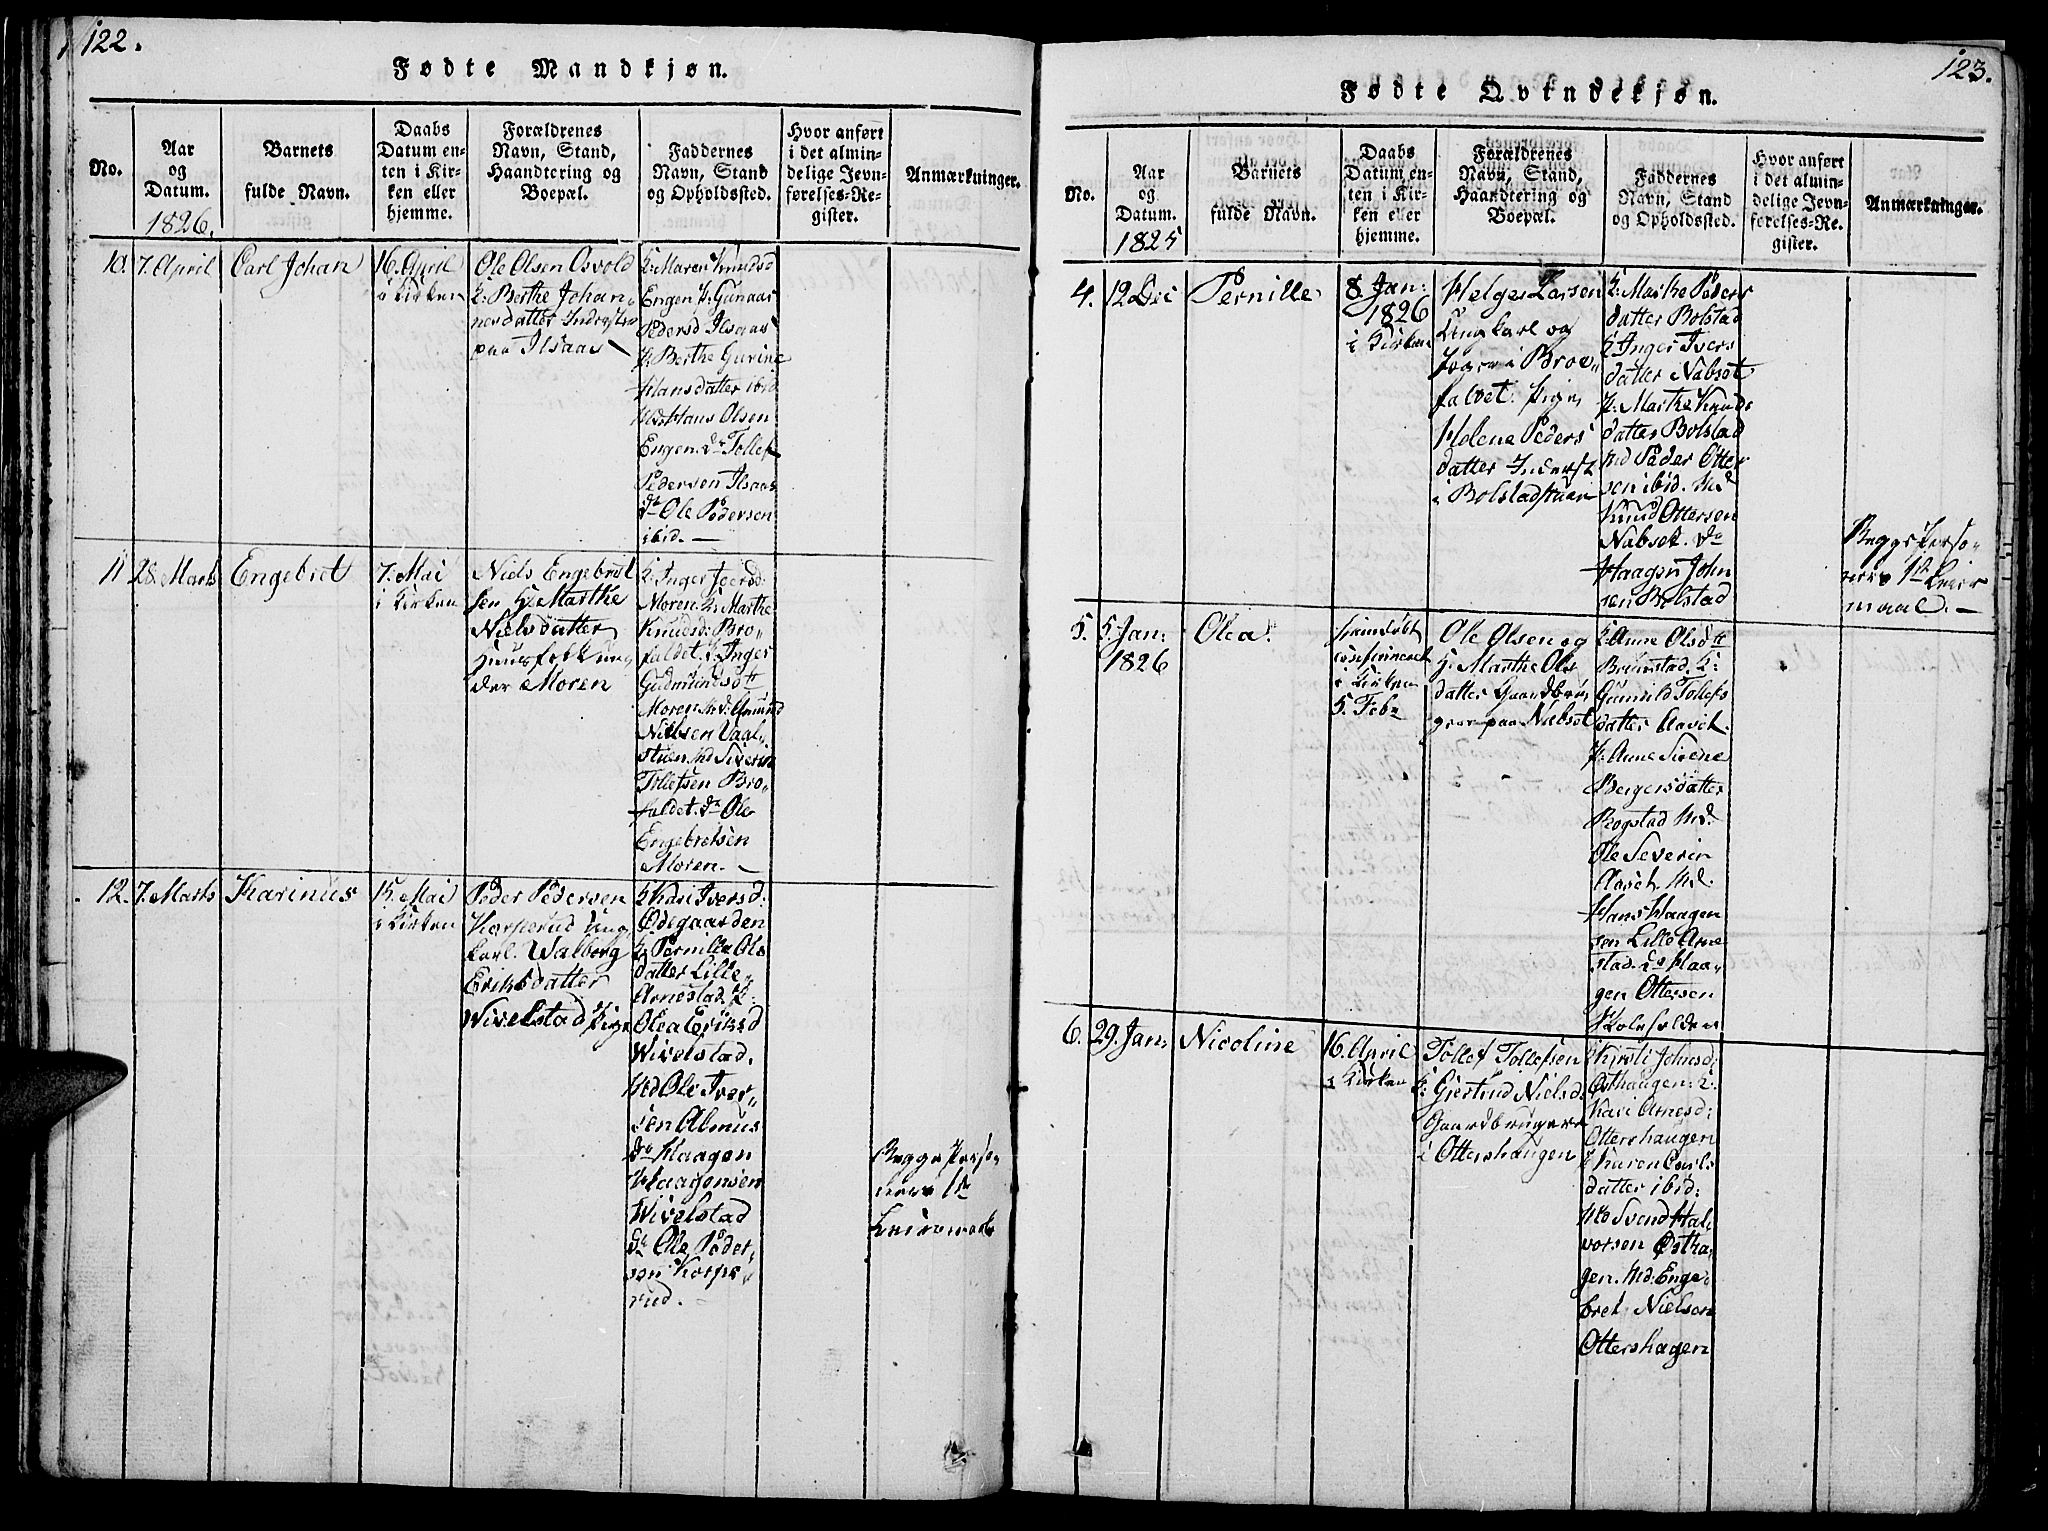 122.
Fødte Mandkjøn.
No.
Aar
og
Datum.
1826.
Barnets
fulde Navn.
Daabs
Datum en-
ten i Kir-
ken eller
hjemme.
Forældrenes
Navn, Stand,
Haandtering og
Boepæl.
Faddernes
Navn, Stand
og Opholdssted.
Hvor anført
i det almin-
delige Jevn-
førelses-Re-
gister.
Anmærkninger.
10.
7. April
Carl Johan
16. April
i Kirken
Ole Olsen Osvold
K: Berthe Johan„
nesdatter Inderster
paa Ilsaas
K: Maren Knudsd
Engen P: Gunaar
Pedersd Ilsaas
P: Berthe Gurine
Hansdatter ibid
Hans Olsen
Engen. do Tollef
Pedersen Ilsaas
do Ole Pedersen
ibid. —
11
28. Marts
Engebret
7. Mai
i Kirken
Niels Engebret
sen H: Marthe
Nielsdatter
Huusfolk un„
der Moren
K: Inger Iversd:
Moren. K: Marthe
Knudsd: Bro„
faldet. P: Inger
Gudmundsdtt
Moren. Amund
Nielsen Vaal„
stuen Md Siverin
Tollefsen Bro„
faldet. do Ole
Engebretsen
Moren. —
12.
7. Marts
Karinus
15. Mai
i Kirken
Peder Pedersen
Korperud Ung„
karl. Walborg
Eriksdatter
Wivelstad Pige
K Kari Iversd:
Ødegaarden
K: Pernille Ols
datter Lille„
Arnestad. P:
Olea Eriksd
Wivelstad.
Md Ole Iver„
sen Almus
do Haagen
Haagensen
Wivelstad
do Ole Peder„
sen Korpe„
rud. —
Begge Perso„
ners 1te
Leiermaal
123.
Fødte Qvindekjøn.
No.
Aar
og
Datum.
1825
Barnets
fulde Navn.
Daabs
Datum en-
ten i Kir-
ken eller
hjemme.
Forældrenes
Navn, Stand,
Haandtering og
Boepæl.
Faddernes
Navn, Stand
og Opholdssted.
Hvor anført
i det almin-
delige Jevn-
førelses-Re-
gister.
Anmærkninger.
4.
12 Dec
Pernille
8. Jan:
1826
i Kirken
Helge Larsen
Ungkarl og
i Broe„
falvet. Pige
Helene Peders
datter Inderst
i Bolstadstuen
K: Marthe Peders
datter Bolstad
K Inger Ivers
datter Nabset
P: Marthe Knuds
datter Bolstad
Md Peder Otter
sen ibid. Md
Knud Ottersen
Nabset. do
Haagen John
sen Bolstad
Begge Perso„
ners 1te Leier
maal. —
5.
5. Jan:
1826
Olea.
hjemdøbt
confirmeret
i Kirken
5. Febr
Ole Olsen og
H: Marthe Ols
datter Gaardbru„
gere paa Nabset
K: Anne Olsdtt
Brunstad. K:
Gunild Tollefs
datter Aaset.
P: Anne Sirene
Bergersdatter
Rogstad Md.
Ole Severin
Aaset. Md.
Hans Haagen
sen Lille Arne
stad. do Haa„
gen Ottersen
Kolefelden
6.
29. Jan:
Nicoline
16. April
i Kirken
Tollef Tollefsen
K: Giertrud Nielsd.
Gaardbrugere
i Ottershaugen
K Kirsti Johnsd:
Østhaugen: K:
Kari Arnesd:
Ottershaugen
P Karen Carls
datter ibid:
Md Svend Hal„
vorsen Østha„
gen. Md: Enge„
bret Nielsen
Ottershagen